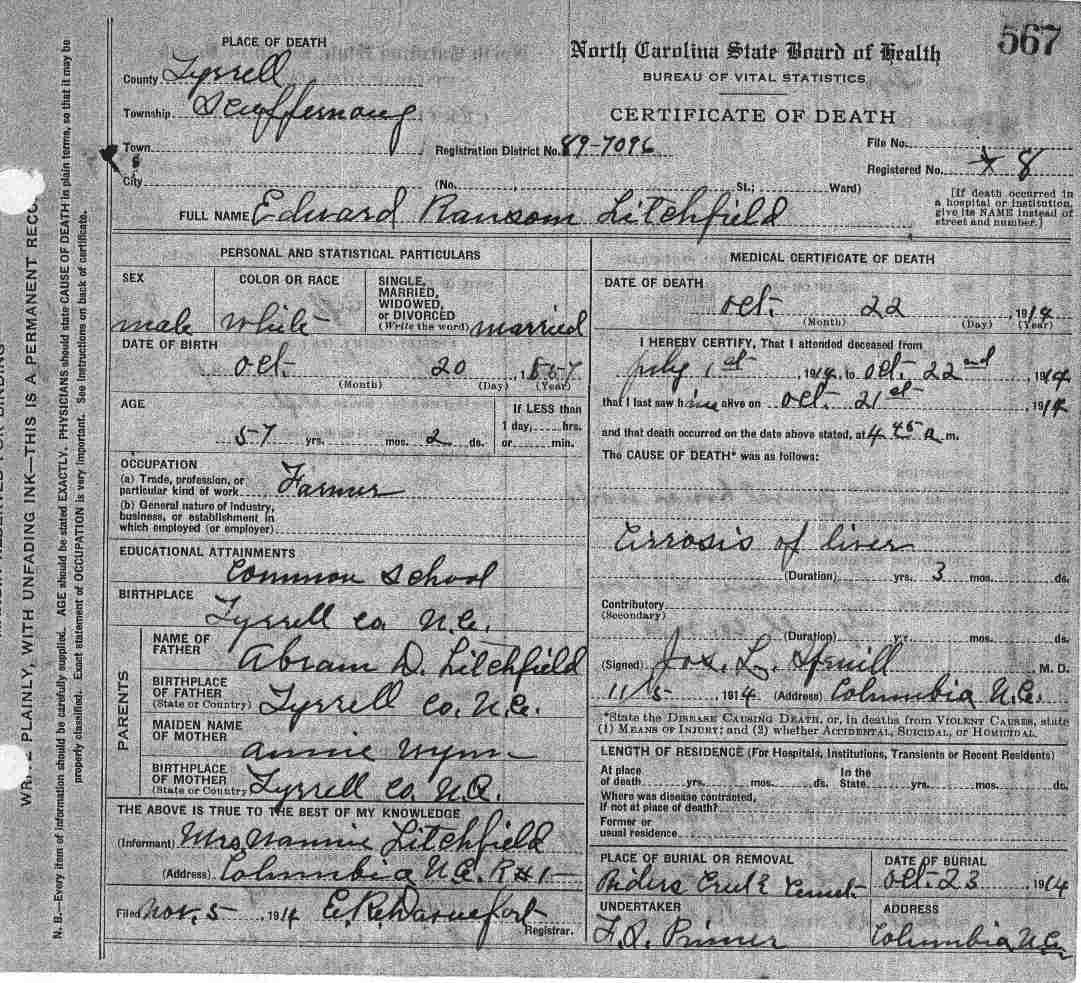 567
PLACE OF DEATH
North Carolina State Board of Health
BUREAU OF VITAL STATISTICS
CERTIFICATE OF DEATH
County Tyrrell
Township Scuppernong
Town
Registration District No. 89-7096
File No.
Registered No. 8
City (No. , St.; Ward)
[If death occurred in a hospital or institution, give its NAME instead of street and number.]
FULL NAME Edward Ransom Litchfield
PERSONAL AND STATISTICAL PARTICULARS
SEX male
COLOR OR RACE white
SINGLE, MARRIED, WIDOWED, or DIVORCED (Write the word) married
DATE OF BIRTH
Oct. 20, 1857
(Month) (Day) (Year)
AGE
57 yrs. mos. 2 ds.
If LESS than 1 day, hrs. or min.
OCCUPATION
(a) Trade, profession, or particular kind of work Farmer
(b) General nature of industry, business, or establishment in which employed (or employer)
EDUCATIONAL ATTAINMENTS
Common School
BIRTHPLACE
Tyrrell Co. N.C.
PARENTS
NAME OF FATHER Abram D. Litchfield
BIRTHPLACE OF FATHER (State or Country) Tyrrell Co. N.C.
MAIDEN NAME OF MOTHER Annie Wynn
BIRTHPLACE OF MOTHER (State or Country) Tyrrell Co. N.C.
THE ABOVE IS TRUE TO THE BEST OF MY KNOWLEDGE
(Informant) Mrs Nannie Litchfield
(Address) Columbia N.C. R#1
Filed Nov. 5, 1914
Registrar.
MEDICAL CERTIFICATE OF DEATH
DATE OF DEATH
Oct. 22, 1914
(Month) (Day) (Year)
I HEREBY CERTIFY, That I attended deceased from
July 1st, 1914, to Oct. 22nd, 1914
that I last saw him alive on Oct. 21st 1914
and that death occurred on the date above stated, at 4 45 a m.
The CAUSE OF DEATH* was as follows:
Cirrosis of liver
(Duration) yrs. 3 mos. ds.
Contributory (Secondary)
(Duration) yr. mos. ds.
(Signed) Jos. L. Spruill M. D.
11/5, 1914 (Address) Columbia N.C.
*State the DISEASE CAUSING DEATH, or, in deaths from VIOLENT CAUSES, state
(1) MEANS OF INJURY; and (2) whether ACCIDENTAL, SUICIDAL, or HOMICIDAL.
LENGTH OF RESIDENCE (For Hospitals, Institutions, Transients or Recent Residents)
At place of death yrs. mos. ds. In the State yrs. mos. ds.
Where was disease contracted, If not at place of death?
Former or usual residence
PLACE OF BURIAL OR REMOVAL
Riders Creek
DATE OF BURIAL
Oct. 23 1914
UNDERTAKER
ADDRESS
Columbia N.C.
WRITE PLAINLY, WITH UNFADING INK—THIS IS A PERMANENT RECO
N. B.—Every item of information should be carefully supplied. AGE should be stated EXACTLY. PHYSICIANS should state CAUSE OF DEATH in plain terms, so that it may be
properly classified. Exact statement of OCCUPATION is very important. See instructions on back of certificate.